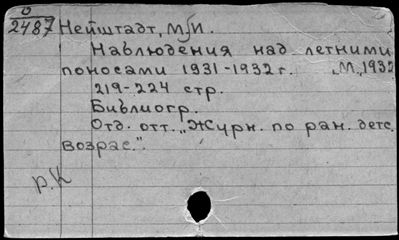 О
2487 Нейштадт, М.И.
Наблюдения над летними
поносами 1931-1932 г. „М„, 1932
219-224 стр.
Библиогр.
Отд. отт. „Журн. по ран. детс.
возрас.".
р.К